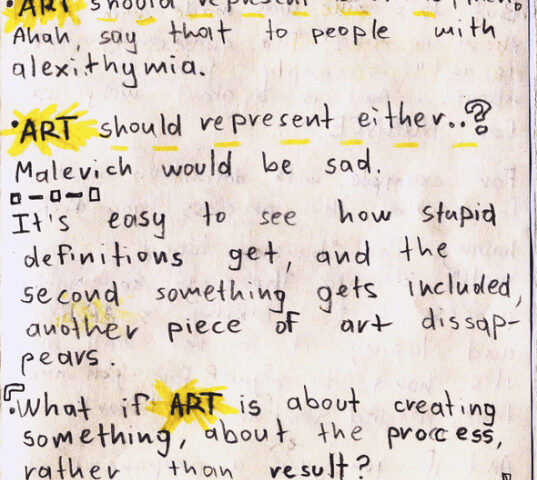 • ART should represent
Ahah, say that to people with
alexithymia.
• ART should represent either..?
Malevich would be sad.
It's easy to see how stupid
definitions get, and the
second something gets included,
another piece of art dissap-
pears.
• What if ART is about creating
something, about the process,
rather than result?